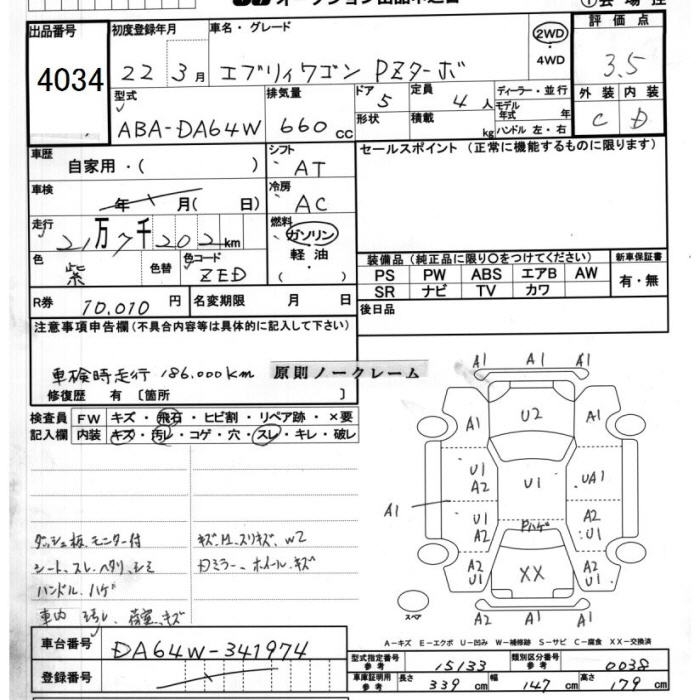 出品番号
4034
初度登録年月
22 3月
車名・グレード
エブリィワゴン PZターボ
2WD
・4WD
評価点
3.5
型式
ABA-DA64W
排気量
660cc
ドア
5
定員
4人
形状
積載
kg
ディーラー・並行
モデル年式 年
ハンドル 左・右
外装 内装
C D
車歴
自家用・( )
シフト
AT
セールスポイント (正常に機能するものに限ります)
車検
年 月( 日)
冷房
AC
走行
21万7千202km
燃料
ガソリン
軽油
・( )
色
紫
色替
色コード
ZED
装備品(純正品に限り○をつけてください)
新車保証書
PS PW ABS エアB AW
SR ナビ TV カワ
有・無
R券 10,010円
名変期限 月 日
後日品
注意事項申告欄(不具合内容等は具体的に記入して下さい)
車検時走行 186,000km
原則ノークレーム
修復歴 有〔箇所 〕
検査員記入欄
FW キズ・飛石・ヒビ割・リペア跡・×要
内装 キズ・汚レ・コゲ・穴・スレ・キレ・破レ
A1 A1 A1
A1 U2 A1
U1 A2 U1 UA1
A1
U1 A2 Pハゲ A2 U1
A2 U1 XX A2 U1
A2 A1 A2
スペア
ダッシュ板、モニター付
シート、スレ、ヘタリ、シミ
ハンドル、ハゲ
車内 汚レ、荷室、キズ
キズ、凹、スリキズ、W2
刀ミラー、ホイール、キズ
A-キズ E-エクボ U-凹み W-補修跡 S-サビ C-腐食 XX-交換済
車台番号
DA64W-341974
登録番号
型式指定番号 参考
15133
類別区分番号 参考
0038
車庫証明用 参考
長さ 339cm
幅 147cm
高さ 179cm